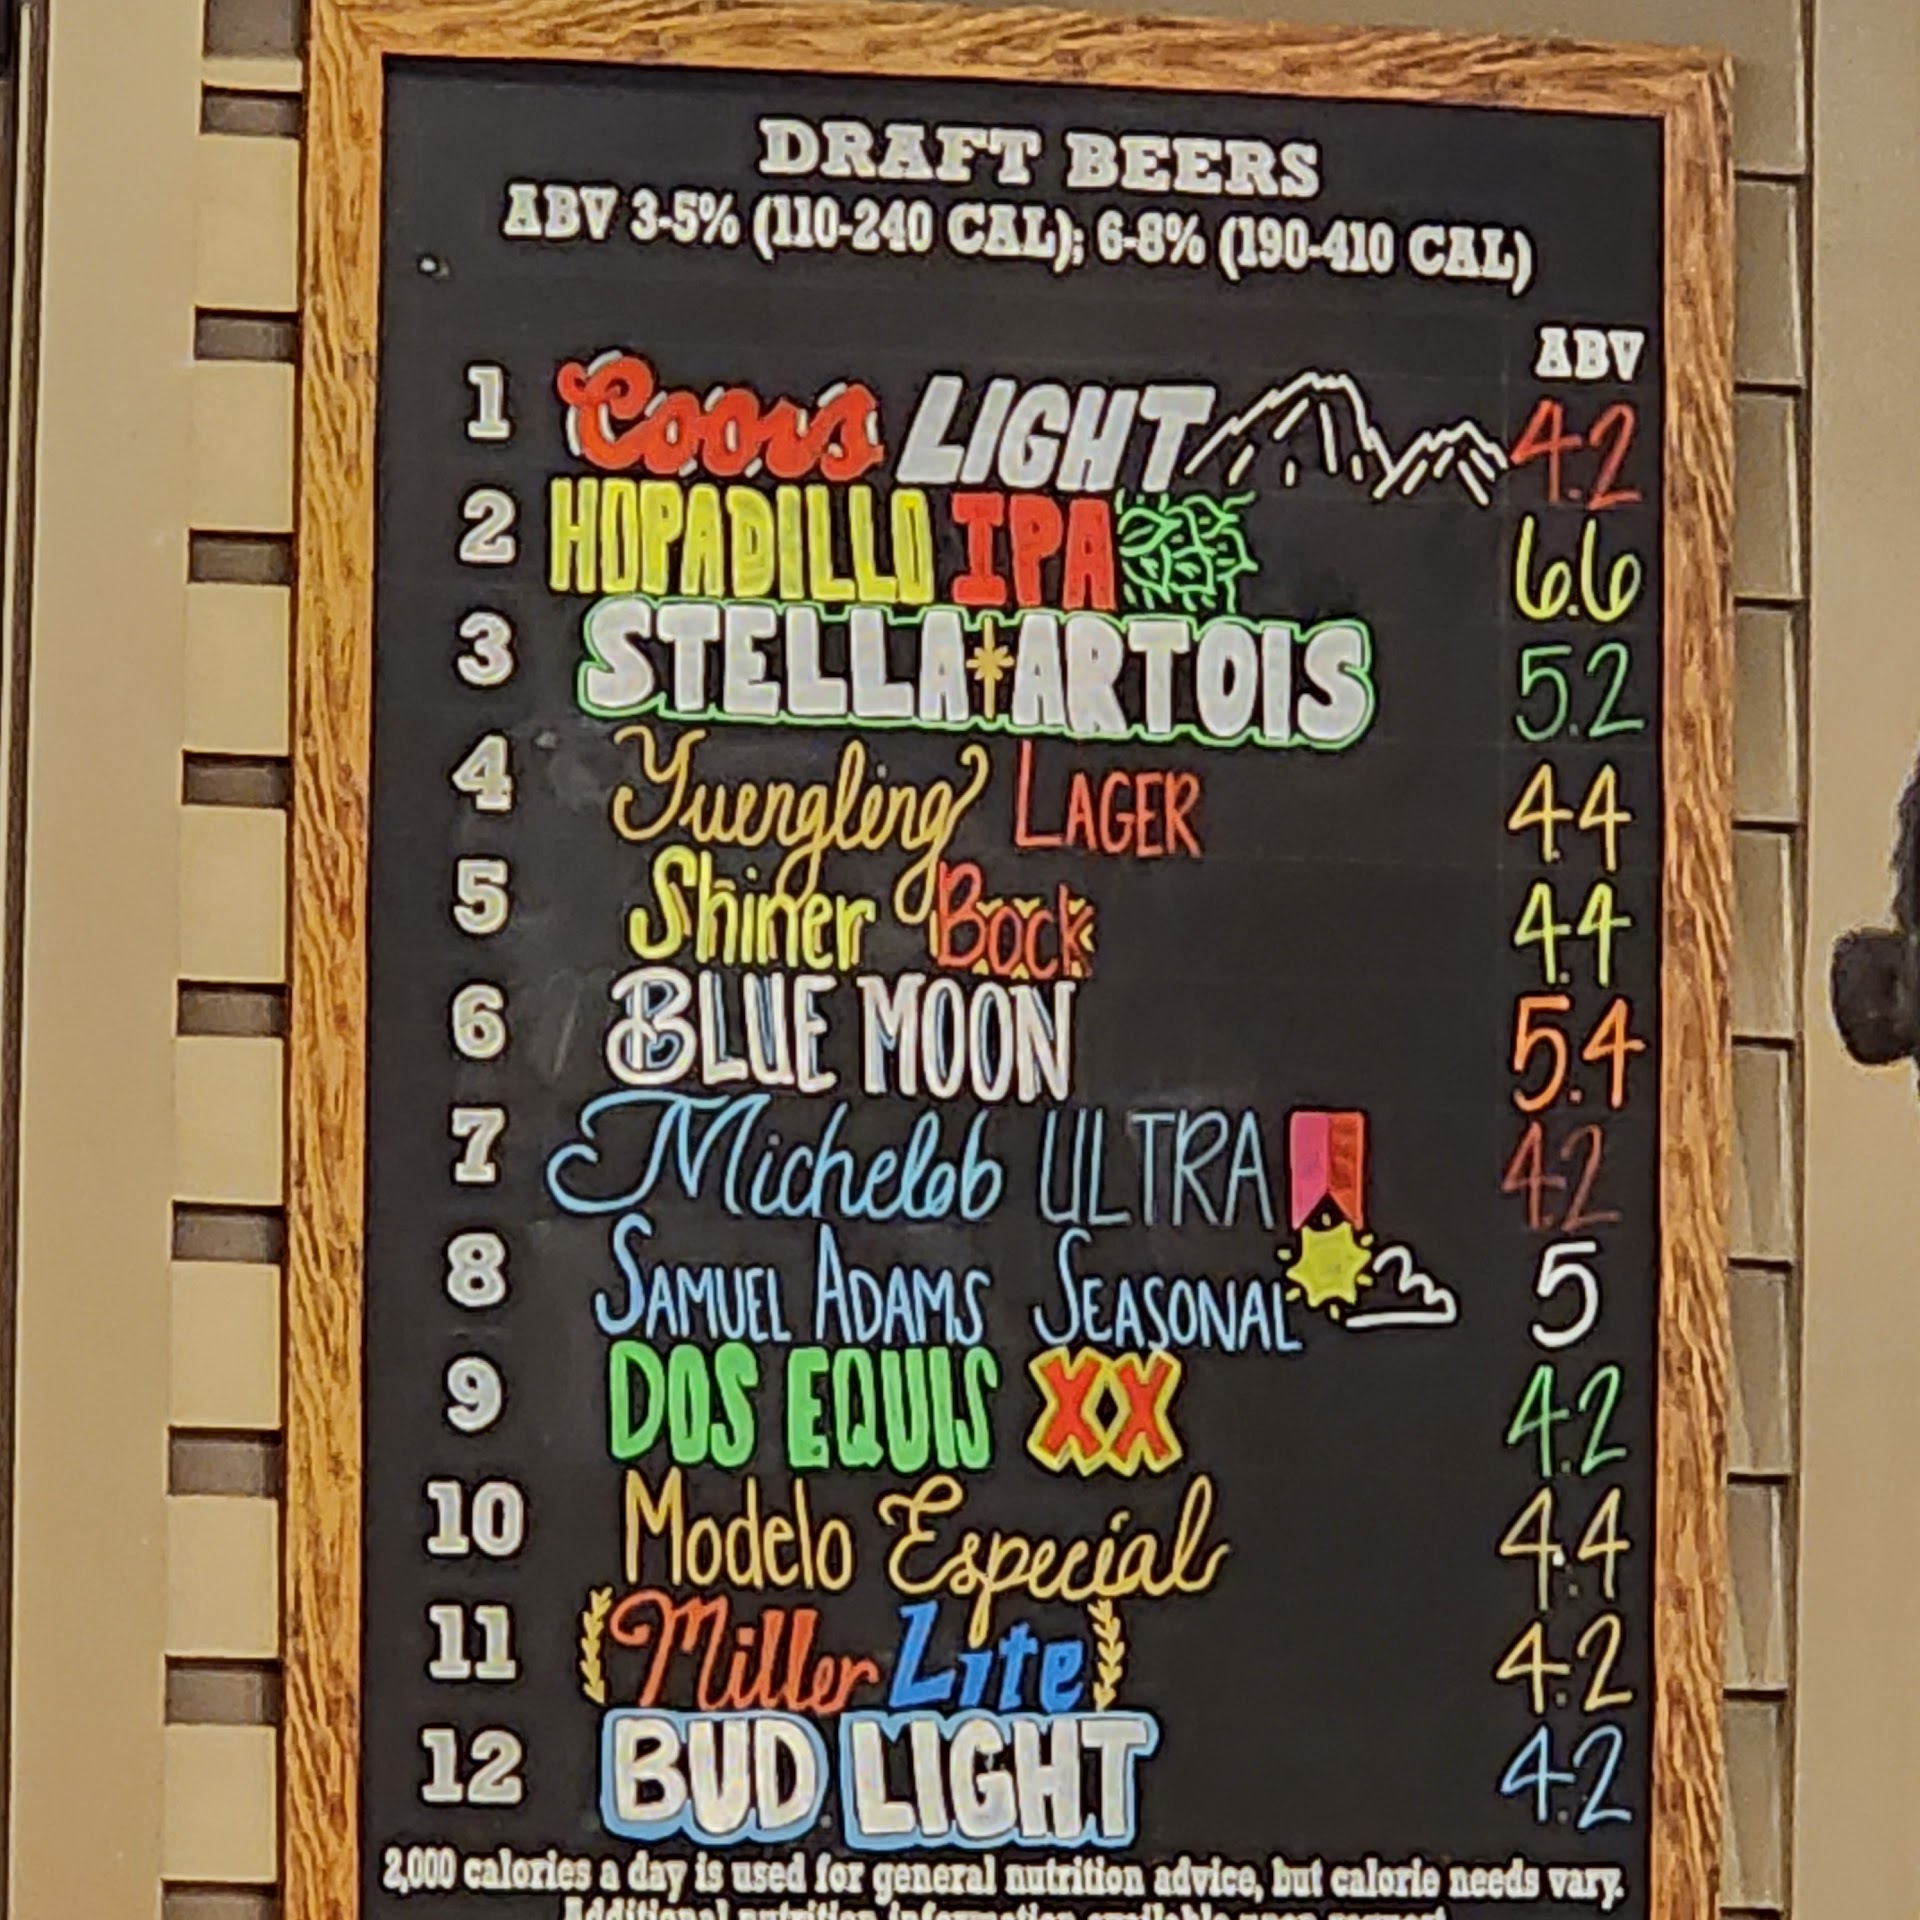 DRAFT BEERS
ABV 3-5% (110-240 CAL); 6-8% (190-410 CAL)
ABV
1 Coors LIGHT 4.2
2 HOPADILLO IPA 6.6
3 STELLA ARTOIS 5.2
4 Yuengling LAGER 4.4
5 Shiner Bock 4.4
6 BLUE MOON 5.4
7 Michelob ULTRA 4.2
8 SAMUEL ADAMS SEASONAL 5
9 DOS EQUIS XX 4.2
10 Modelo Especial 4.4
11 Miller Lite 4.2
12 BUD LIGHT 4.2
2,000 calories a day is used for general nutrition advice, but calorie needs vary.
Additional nutrition information available upon request.